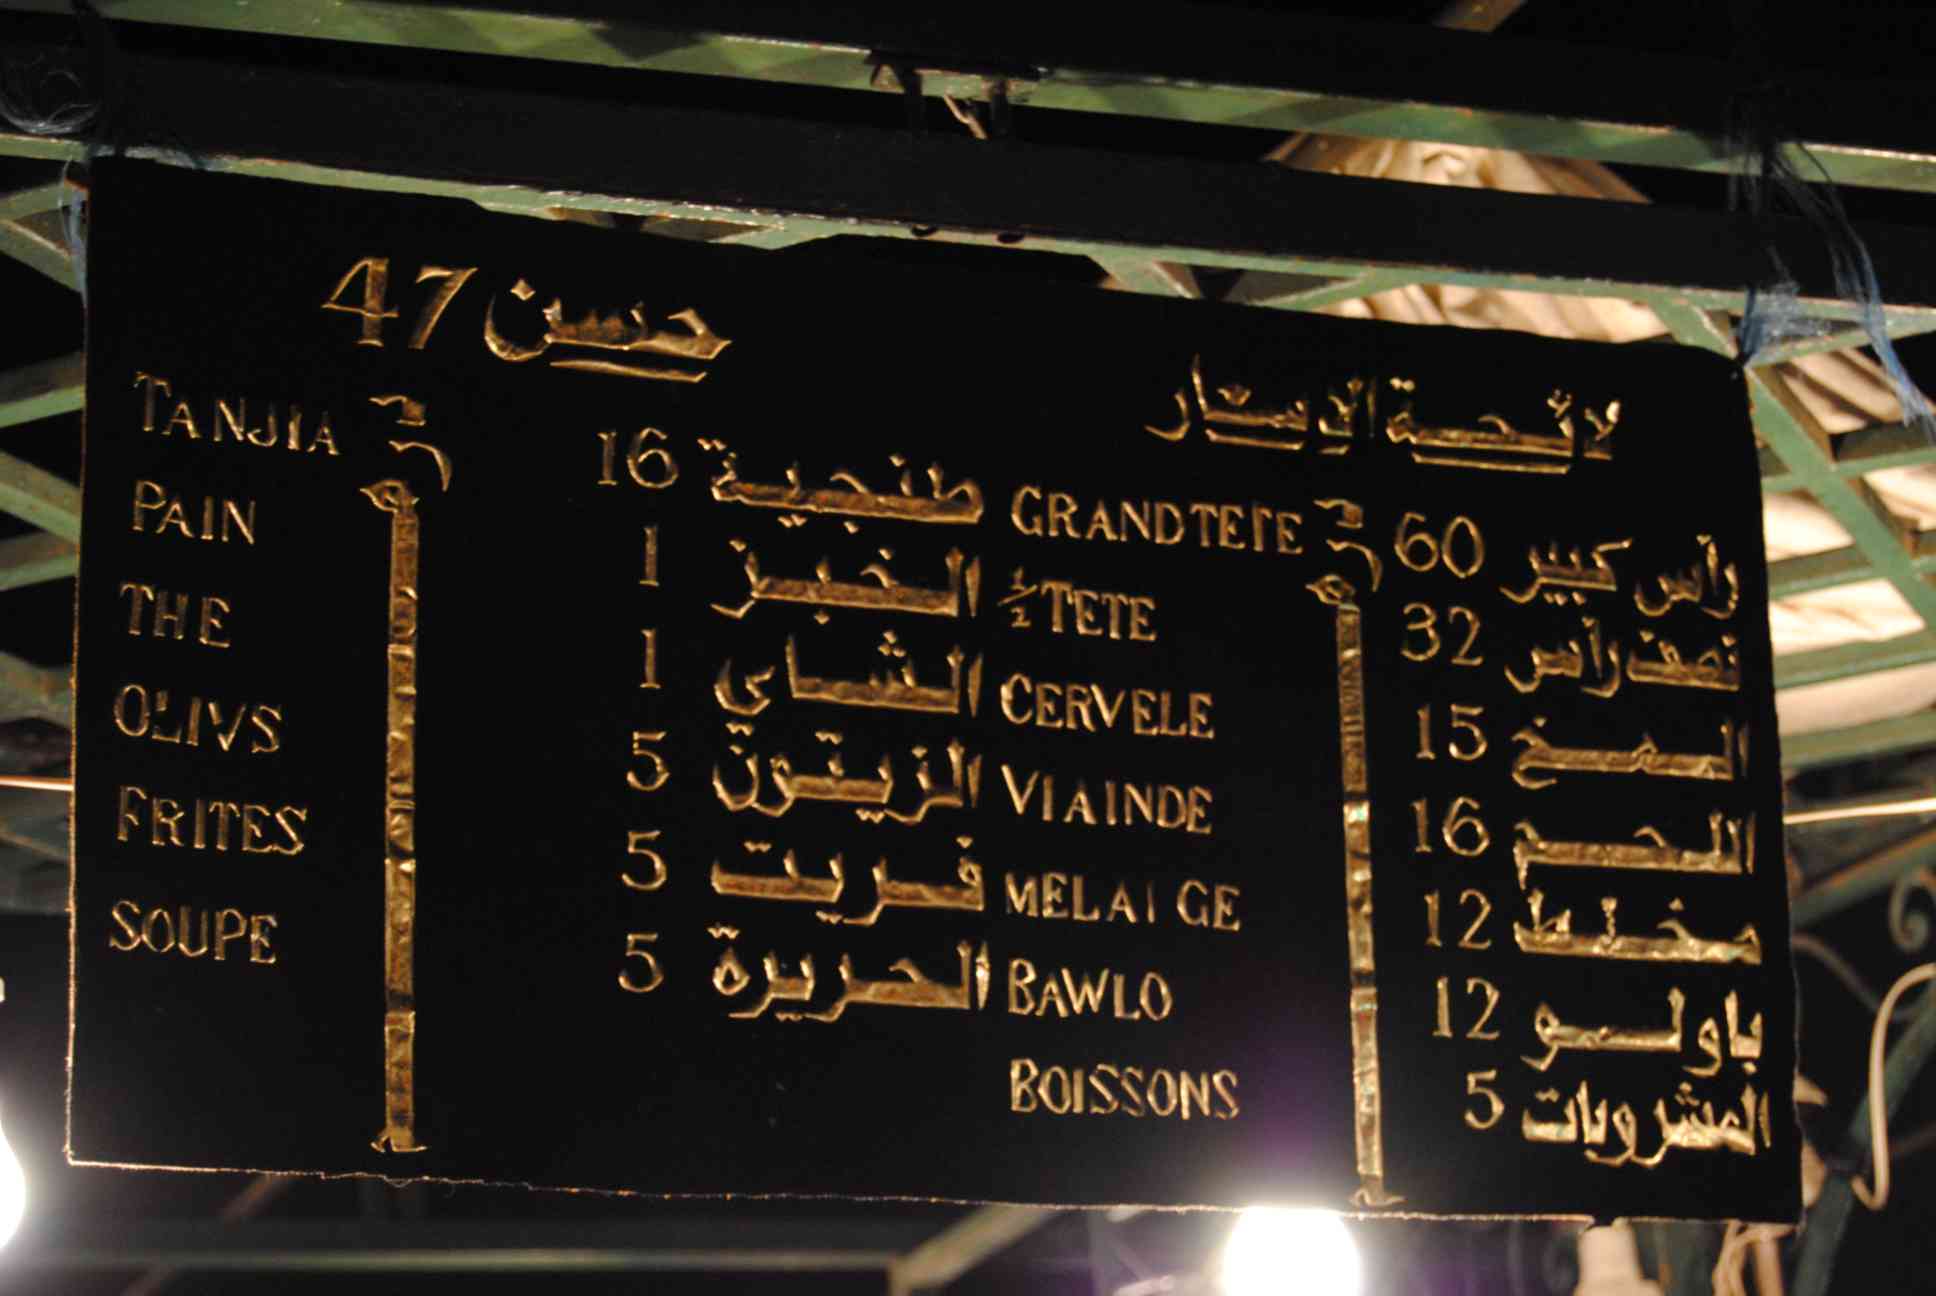 47 حسن
لائحة الاستار
TANJIA 16 طنجية
PAIN 1 الخبز
THE 1 الشاي
OLIVS 5 الزيتون
FRITES 5 فريت
SOUPE 5 الحريرة
GRAND TETE 60 رأس كبير
½ TETE 32 نصف رأس
CERVELE 15 المخ
VIAINDE 16 اللحم
MELAIGE 12 مختلط
BAWLO 12 باولو
BOISSONS 5 المشروبات